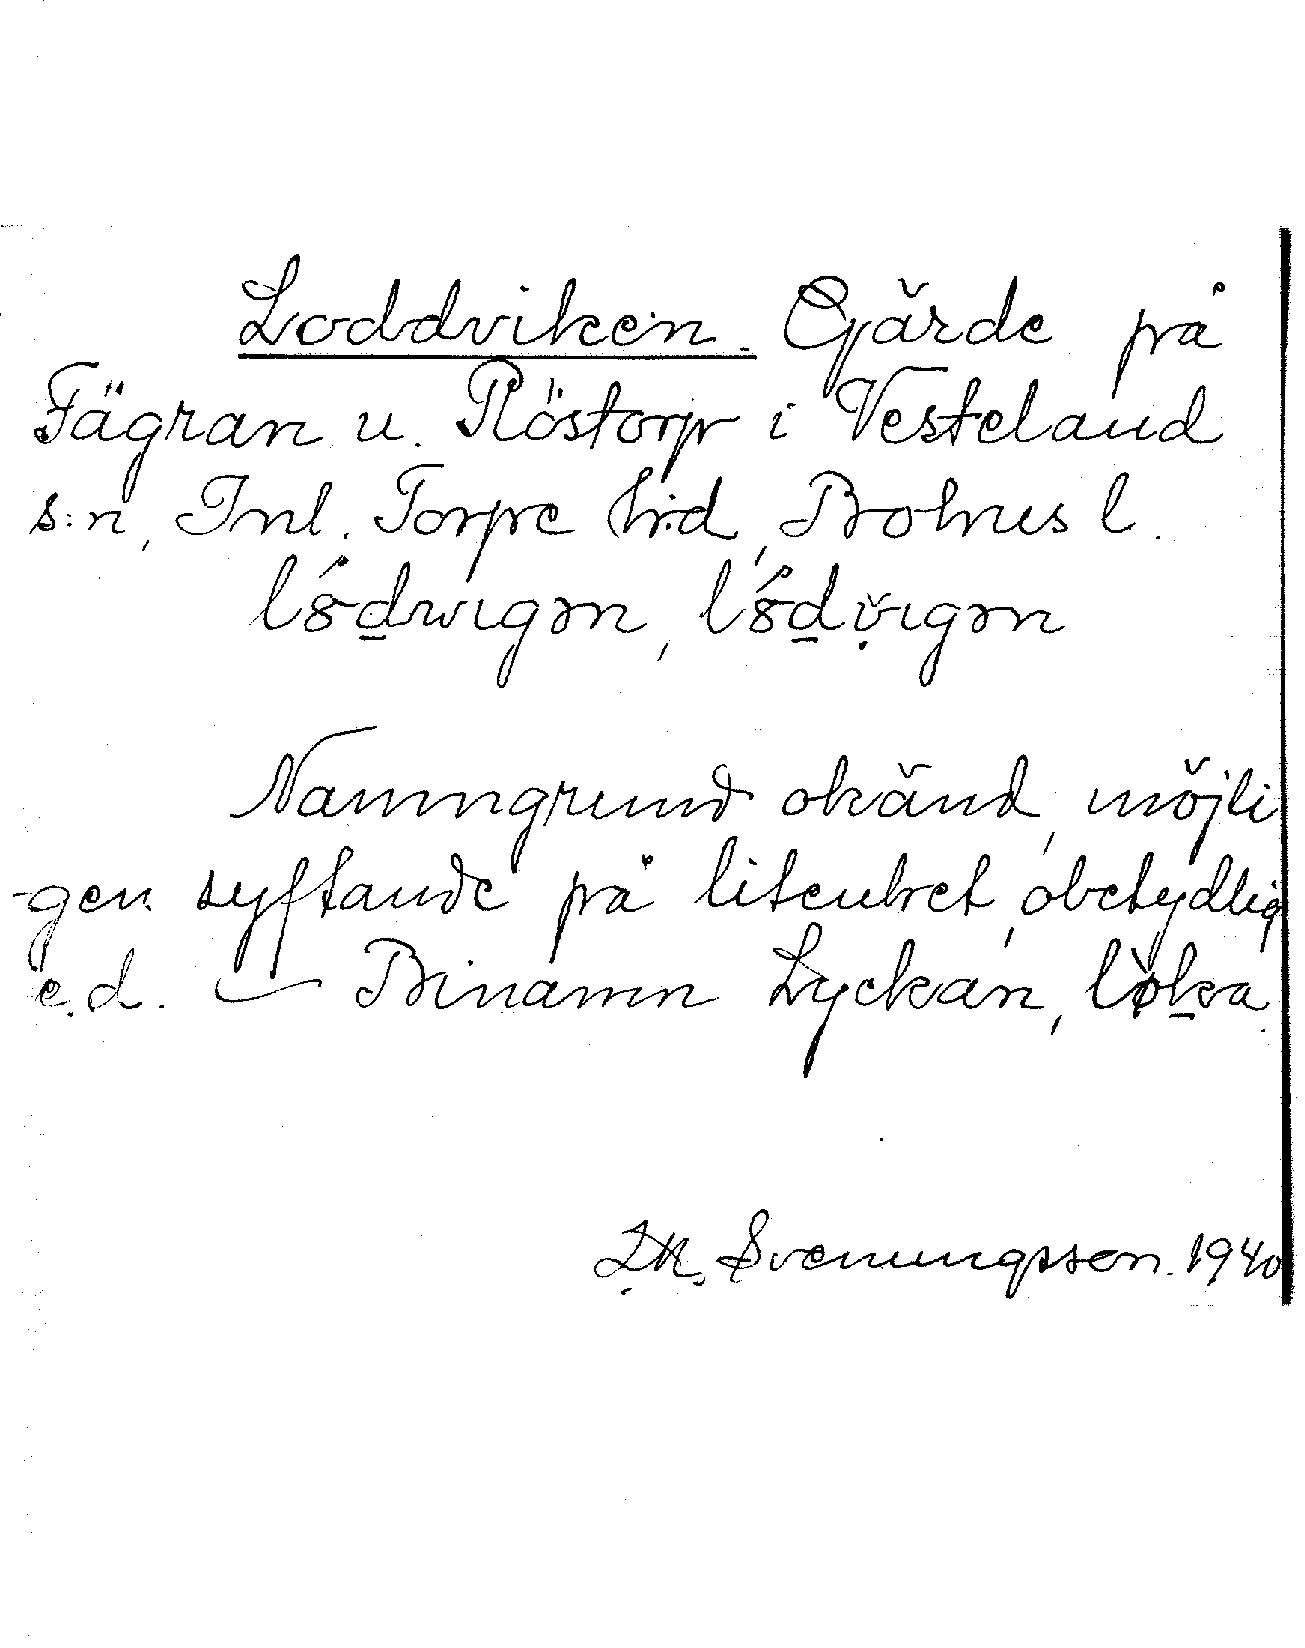 Loddviken. Gärde på
Fägran u. Röstorp i Vesteland
s:n, Inl. Torpe hrd, Bohus l.
lódwıgən, lódv̌ıgən
Namngrund okänd, möjli
-gen syftande på litenhet, obetydlig
e.d. — Binamn Lyckan, lø̀ka.
Svenungsson. 1940